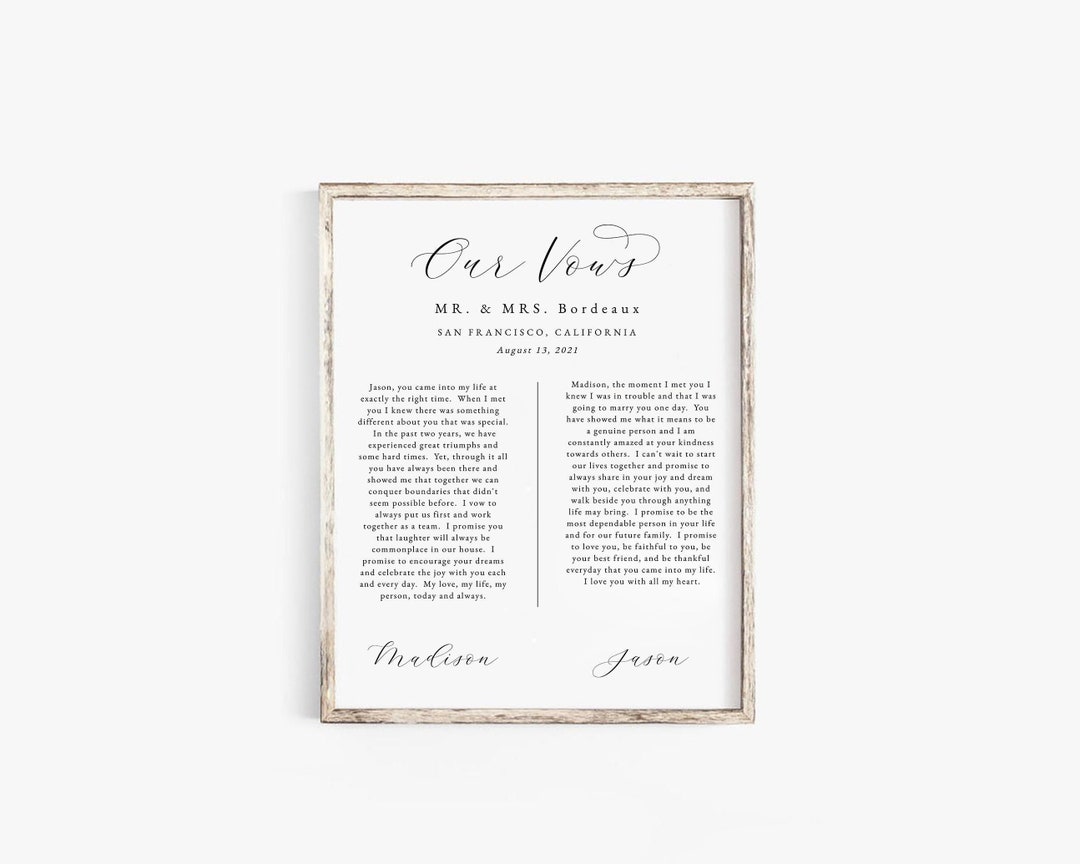 Our Vows
MR. & MRS. Bordeaux
SAN FRANCISCO, CALIFORNIA
August 13, 2021
Jason, you came into my life at
exactly the right time. When I met
you I knew there was something
different about you that was special.
In the past two years, we have
experienced great triumphs and
some hard times. Yet, through it all
you have always been there and
showed me that together we can
conquer boundaries that didn't
seem possible before. I vow to
always put us first and work
together as a team. I promise you
that laughter will always be
commonplace in our house. I
promise to encourage your dreams
and celebrate the joy with you each
and every day. My love, my life, my
person, today and always.
Madison
Madison, the moment I met you I
knew I was in trouble and that I was
going to marry you one day. You
have showed me what it means to be
a genuine person and I am
constantly amazed at your kindness
towards others. I can't wait to start
our lives together and promise to
always share in your joy and dream
with you, celebrate with you, and
walk beside you through anything
life may bring. I promise to be the
most dependable person in your life
and for our future family. I promise
to love you, be faithful to you, be
your best friend, and be thankful
everyday that you came into my life.
I love you with all my heart.
Jason